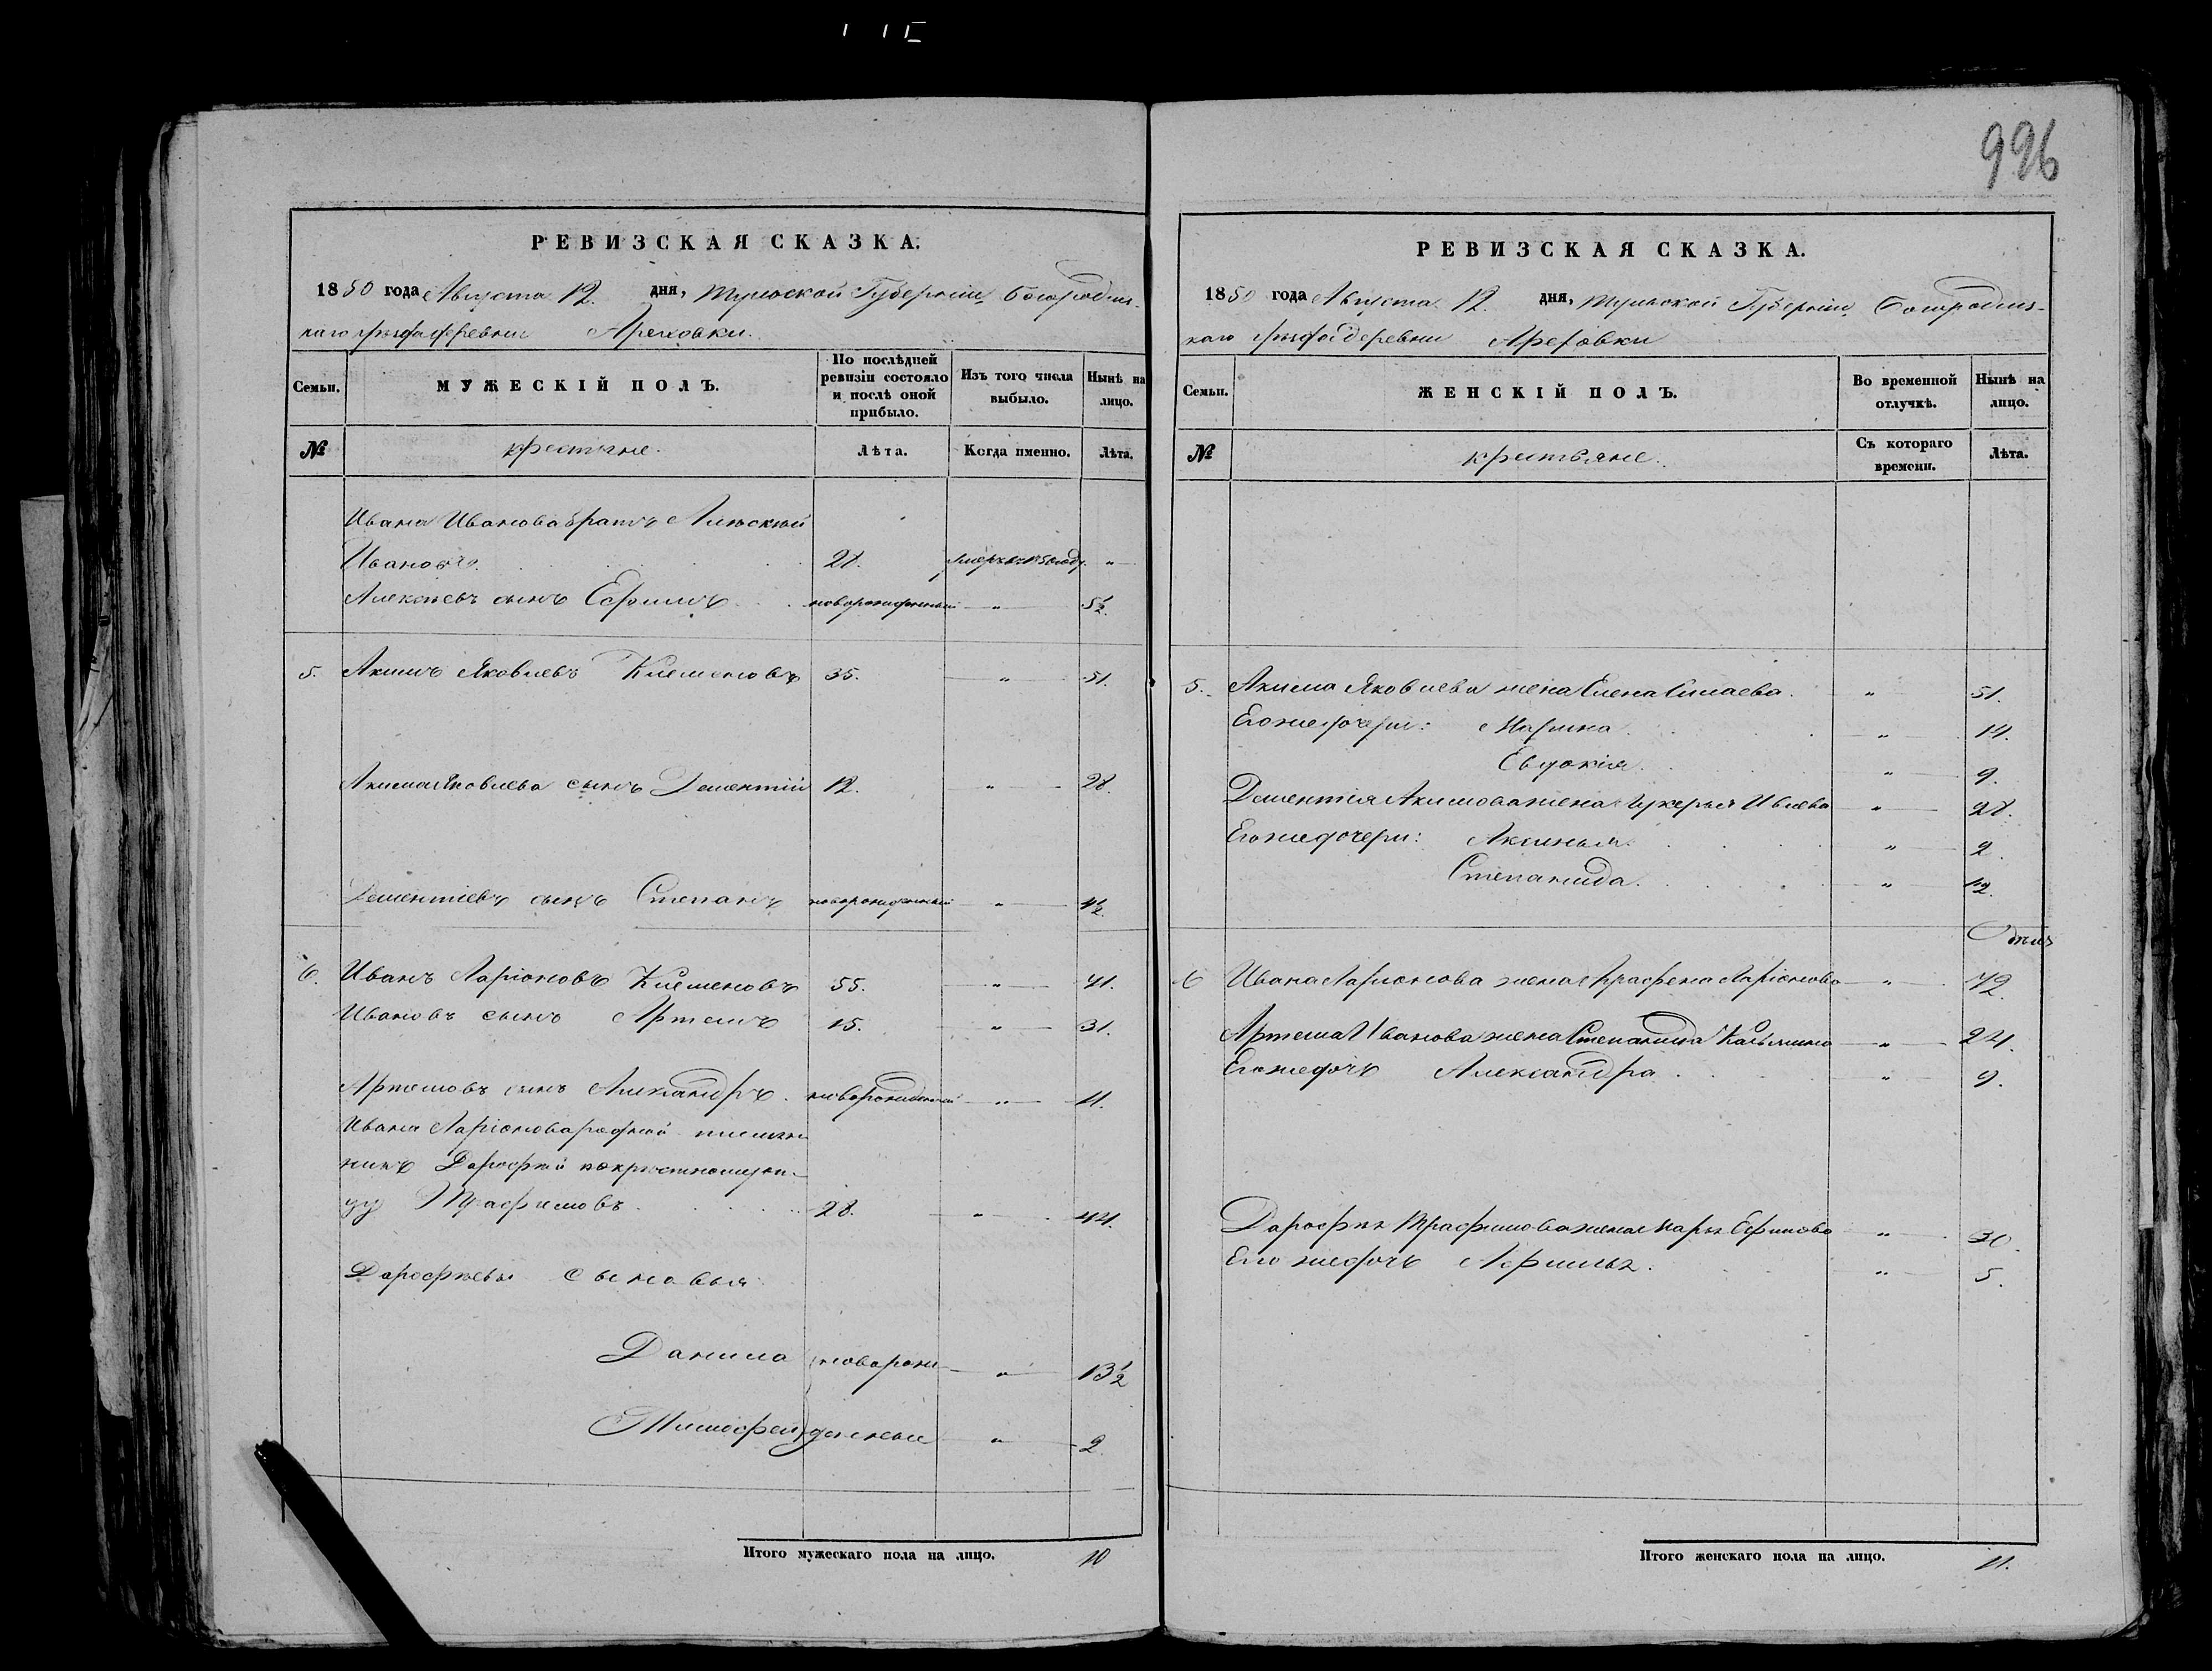 996
РЕВИЗСКАЯ СКАЗКА.
1850 года Августа 12. дня, Тульской Губерніи Богородиц-
каго уѣзда деревни Ареховки.
Семьи.
МУЖЕСКІЙ ПОЛЪ.
По послѣдней ревизіи состояло и послѣ оной прибыло.
Изъ того числа выбыло.
Нынѣ на лицо.
№
крестьяне.
Лѣта.
Когда именно.
Лѣта.
Ивана Иванова братъ Алексѣй
Ивановъ. 28. "
Алексѣевъ сынъ Ефимъ новорожденный " 5½.
5. Акимъ Яковлевъ Клеменовъ 35. " 51.
Акима Яковлева сынъ Дементій 12. " 28.
Дементіевъ сынъ Степанъ новорожденный "
6. Иванъ Ларіоновъ Клеменовъ 55. " 71.
Ивановъ сынъ Артемъ 15. " 31.
Артемовъ сынъ Александръ новорожденный " 11.
Ивана Ларіонова родной племян-
никъ Дарофѣй по крестному от-
цу Трафимовъ 28. " 44.
Дарофѣевы сыновья
Данила новорож- " 13½
Тимофей денные " 2.
Итого мужескаго пола на лицо. 10
РЕВИЗСКАЯ СКАЗКА.
1850 года Августа 12. дня, Тульской Губерніи Богородиц-
каго уѣзда деревни Ареховки
Семьи.
ЖЕНСКІЙ ПОЛЪ.
Во временной отлучкѣ.
Нынѣ на лицо.
№
крестьяне.
Съ котораго времени.
Лѣта.
5. Акима Яковлева жена Елена Силаева. " 51.
Его же дочери: Марина. " 14.
Евдокія. " 9.
Дементія Акимова жена Лукерья Ивлева " 28.
Его же дочери: Аксинья. " 2.
Степанида. " ½.
6 Ивана Ларионова жена Аграфена Ларіонова " 72.
Артема Иванова жена Степанида Казьмина " 24.
Его же дочь Александра " 9.
Дарофѣя Трафимова жена Марья Ефимова " 30.
Его же дочь Афимья. " 5.
Итого женскаго пола на лицо. 11.